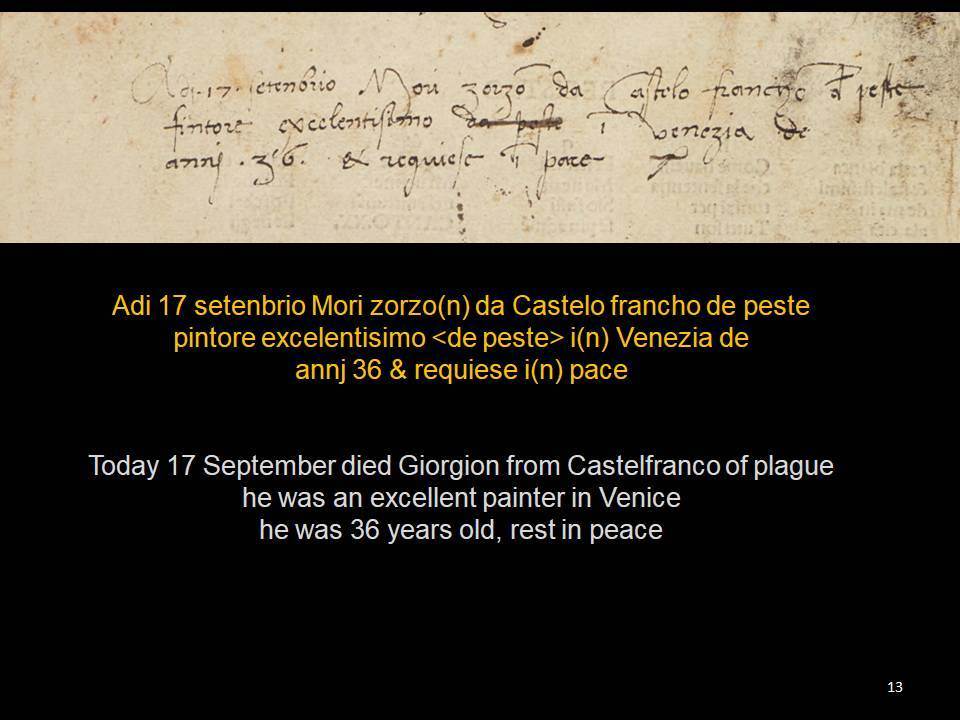 Adi .17. setenbrio Mori zorzo da Castelo francho de peste
pintore excelentisimo da peste i venezia de
annj .36. & requiese i pace
Adi 17 setenbrio Mori zorzo(n) da Castelo francho de peste
pintore excelentisimo <de peste> i(n) Venezia de
annj 36 & requiese i(n) pace
Today 17 September died Giorgion from Castelfranco of plague
he was an excellent painter in Venice
he was 36 years old, rest in peace
13